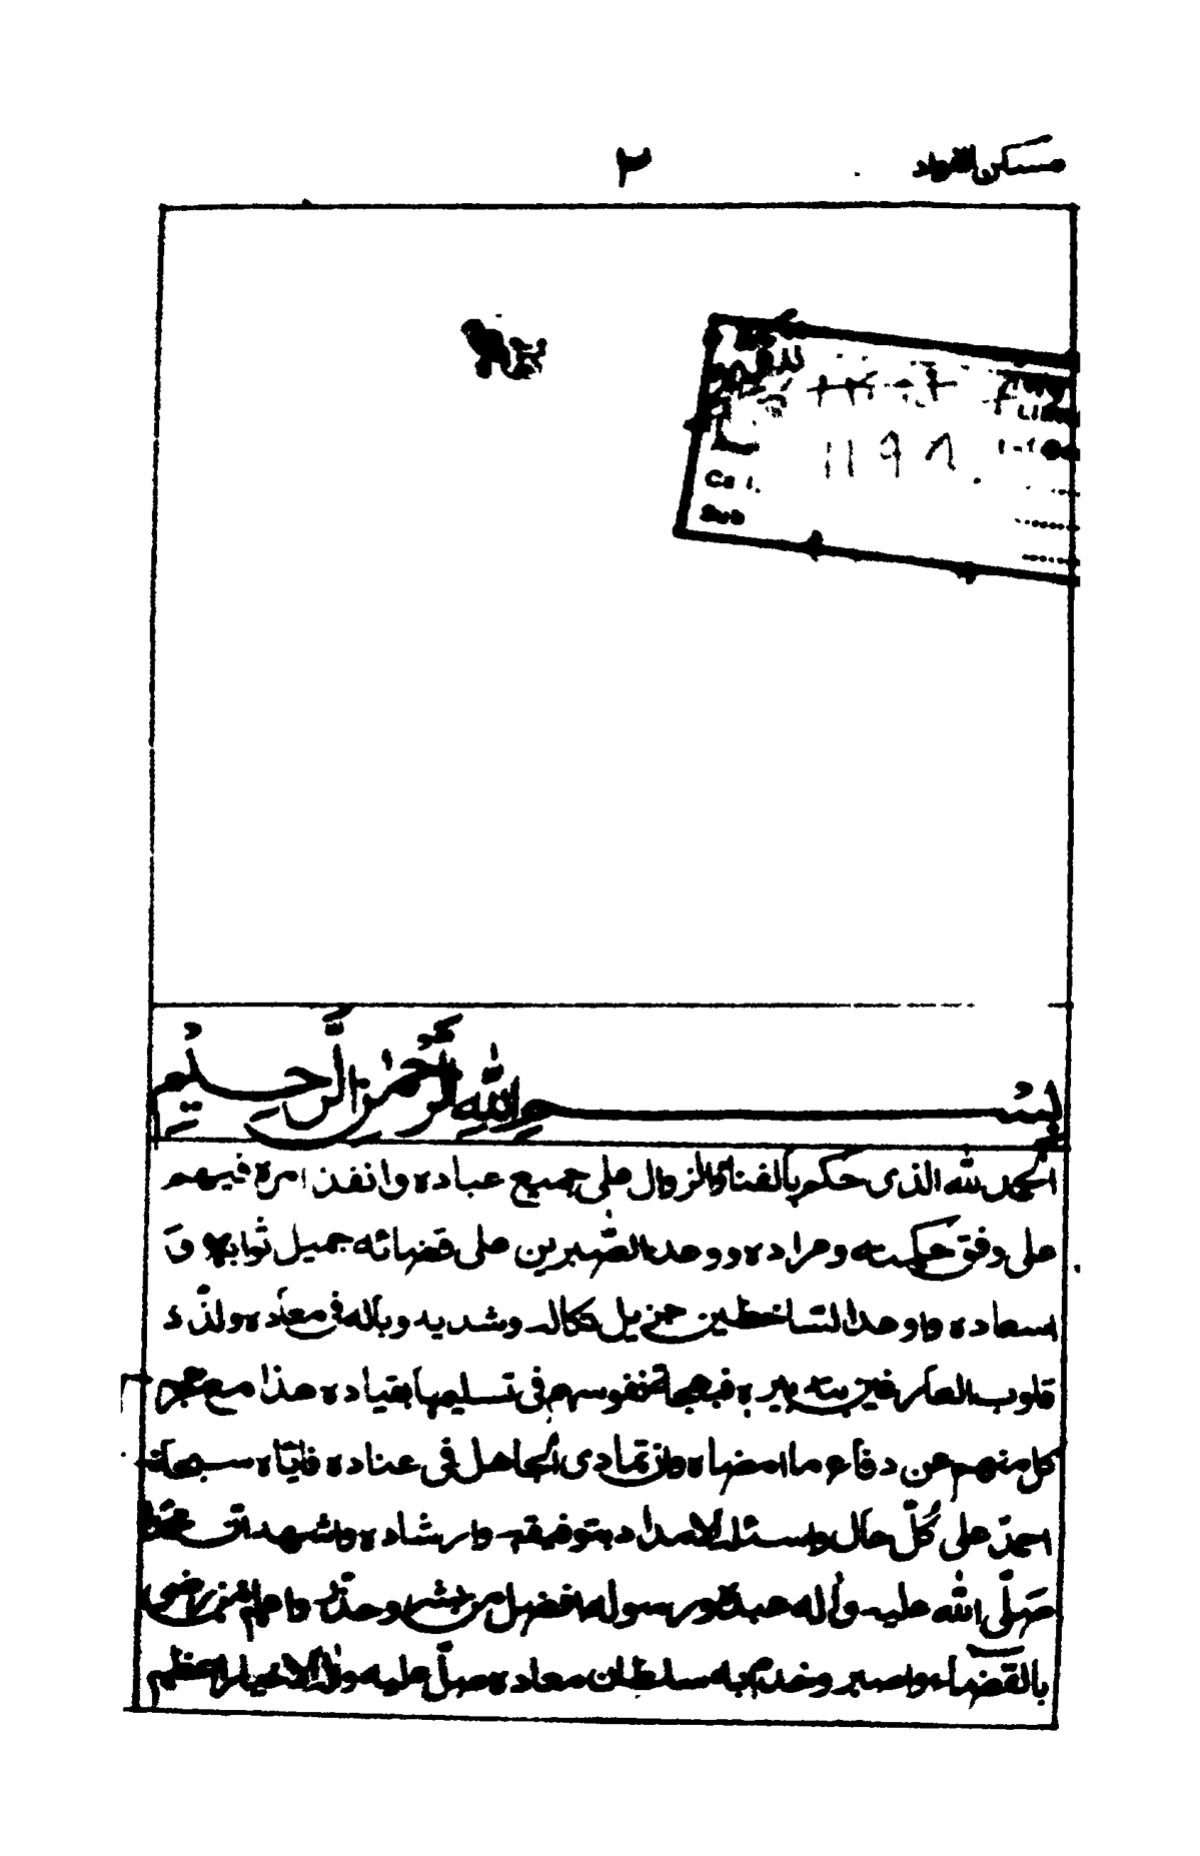 مسكن الفواد
٢
١١٩٨
Cal.
Sub
بسم الله الرحمن الرحيم
الحمد لله الذى حكم بالفناء والزوال على جميع عباده وانفذ امره فيهم
على وفق حكمته ومراده ووعد الصّٰبرين على قضائه جميل ثوابه و
اسعاده واوعد السّاخطين جزيل نكاله وشديد وباله فى معاده ولذّذ
قلوب العارفين بتدبيره فبهجة نفوسهم فى تسليمها بقياده هذا مع عجز
كل منهم عن دفاع ما امضاه وان تمادى الجاهل فى عناده فايّاه سبحانه
احمد على كُلّ حال واسئله الامداد بتوفيقه وارشاده واشهد ان محمّدا
صَلّى الله عليه وآله عبده ورسوله افضل من بشر وحذّر واعلم من رضى
بالقضاء واصبر وخدم به سلطان معاده صلّ عليه وآله الاخيار اعظم